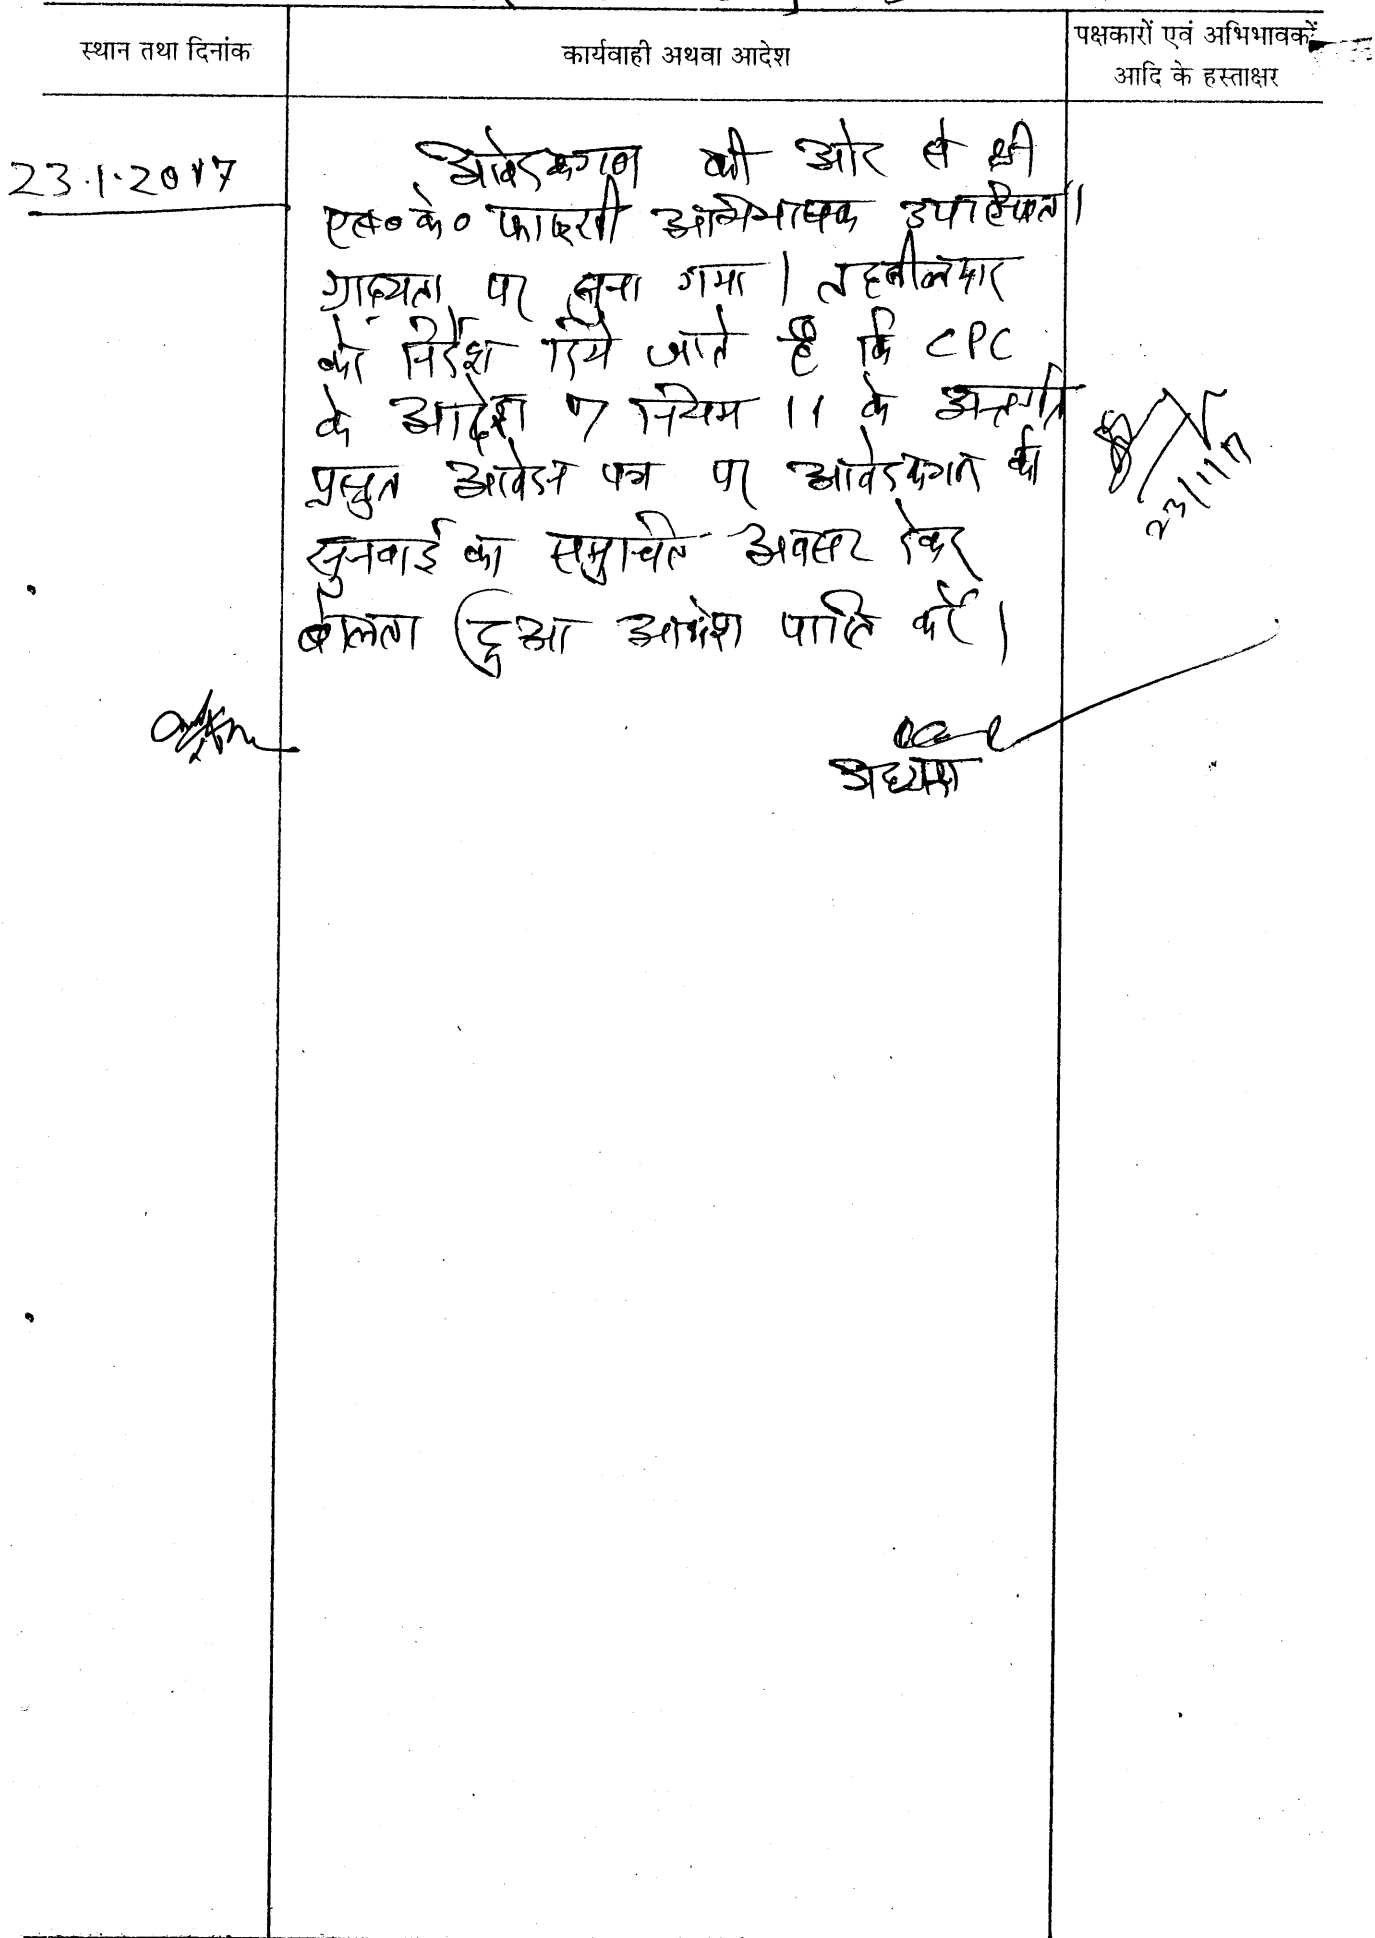 स्थान तथा दिनांक
कार्यवाही अथवा आदेश
पक्षकारों एवं अभिभावकों
आदि के हस्ताक्षर
23.1.2017
आवेदकगण की ओर से श्री
एस० के० अभिभाषक उपस्थित।
ग्राह्यता पर सुना गया। तहसीलदार
को निर्देश दिये जाते हैं कि CPC
के आदेश 7 नियम 11 के अन्तर्गत
प्रस्तुत आवेदन पत्र पर आवेदकगण को
सुनवाई का समुचित अवसर देकर
बोलता हुआ आदेश पारित करें।
23/1/17
अध्यक्ष